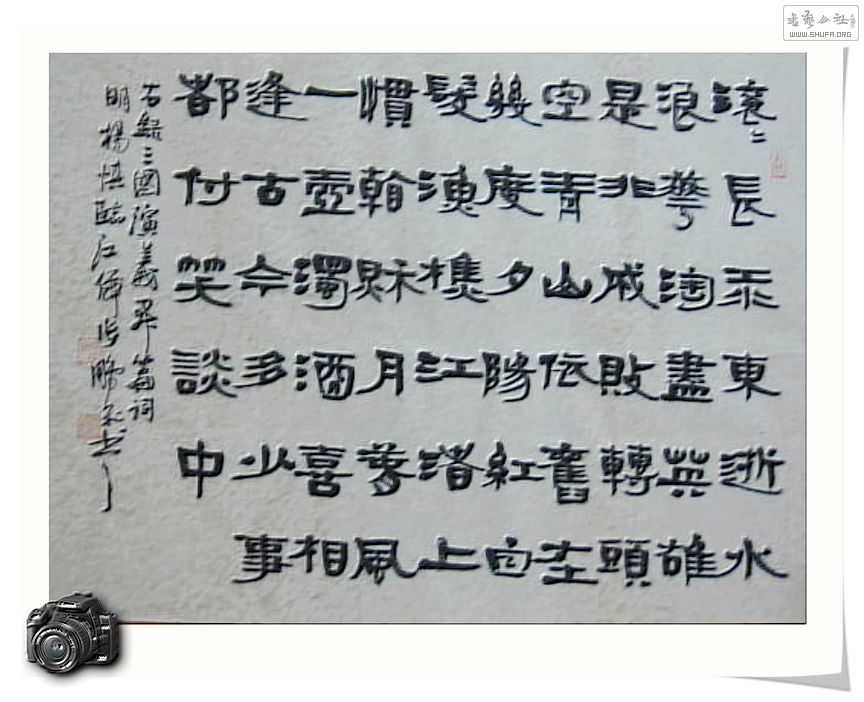 滚〻長東逝水
浪華淘盡英雄
是非成敗轉頭
空青山依舊在
幾度夕陽紅白
髮漁樵江渚上
慣秌月春風
一壺濁酒喜相
逢古今多少事
都付笑談中
右錄三國演義開篇詞
明楊慎臨江仙
书艺公社
WWW.SHUFA.ORG